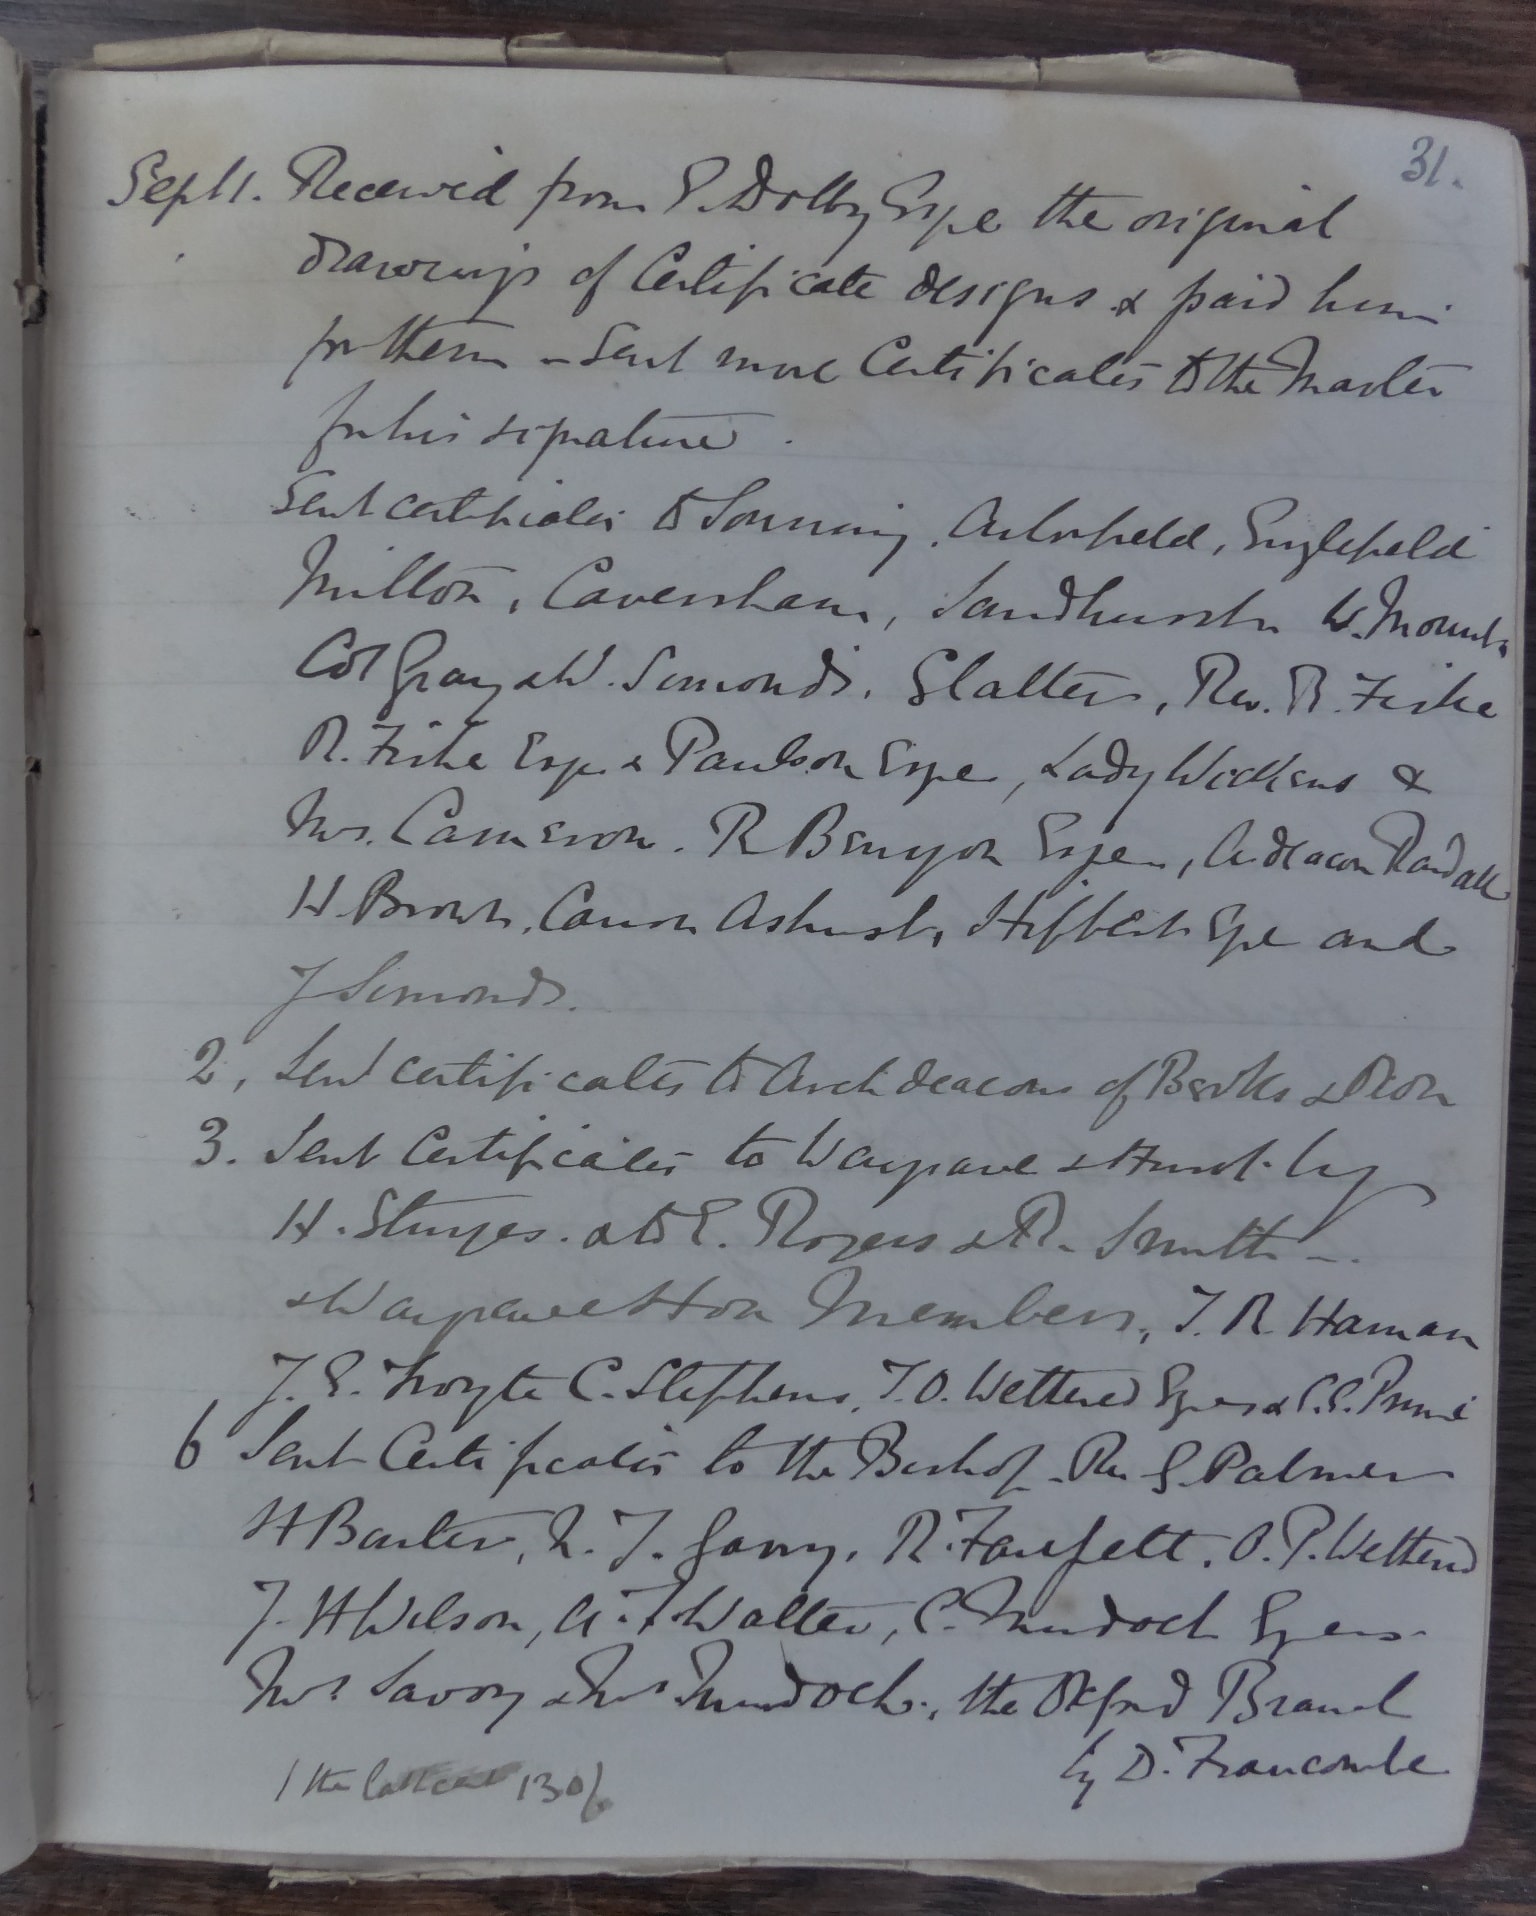 31.
Sept 1. Received from E. Dolby Esqe the original
drawings of Certificate designs & paid him
for them – Sent more Certificates to the Master
for his signature.
Sent certificates to Sonning, Arborfield, Englefield
Milton, Caversham, Sandhurst, W. Mount,
Col Gray & W. Simonds, Slatter, Rev. R. Fiske
R. Fiske Esqe & Paulson Esqe, Lady Wickens &
Mrs. Cameron. R Benyon Esqe, Ardeacon Randall
H. Brown, Canon Ashurst, Hibbert Esqe and
J Simonds.
2, Sent certificates to Archdeacons of Berks & Oxon
3. Sent Certificates to Wargrave & Hurst by
H. Sturges. & to E. Rogers & R. Smith –.
& Wargrave Hon Members, T. R. Haman
J. S. Hoyte C. Stephens, T. O. Wethered Esqres & C. E. Prime
6 Sent Certificates to the Bishop – Rev G. Palmer
H Barter, N. T. Garry, R. Fanshett, O. P. Wethered
J. H Wilson, A. F. Walter, C. Murdoch Esqres
Mrs Savory & Mrs Murdoch, the Oxford Branch
by D. Francombe
/ the last 130/